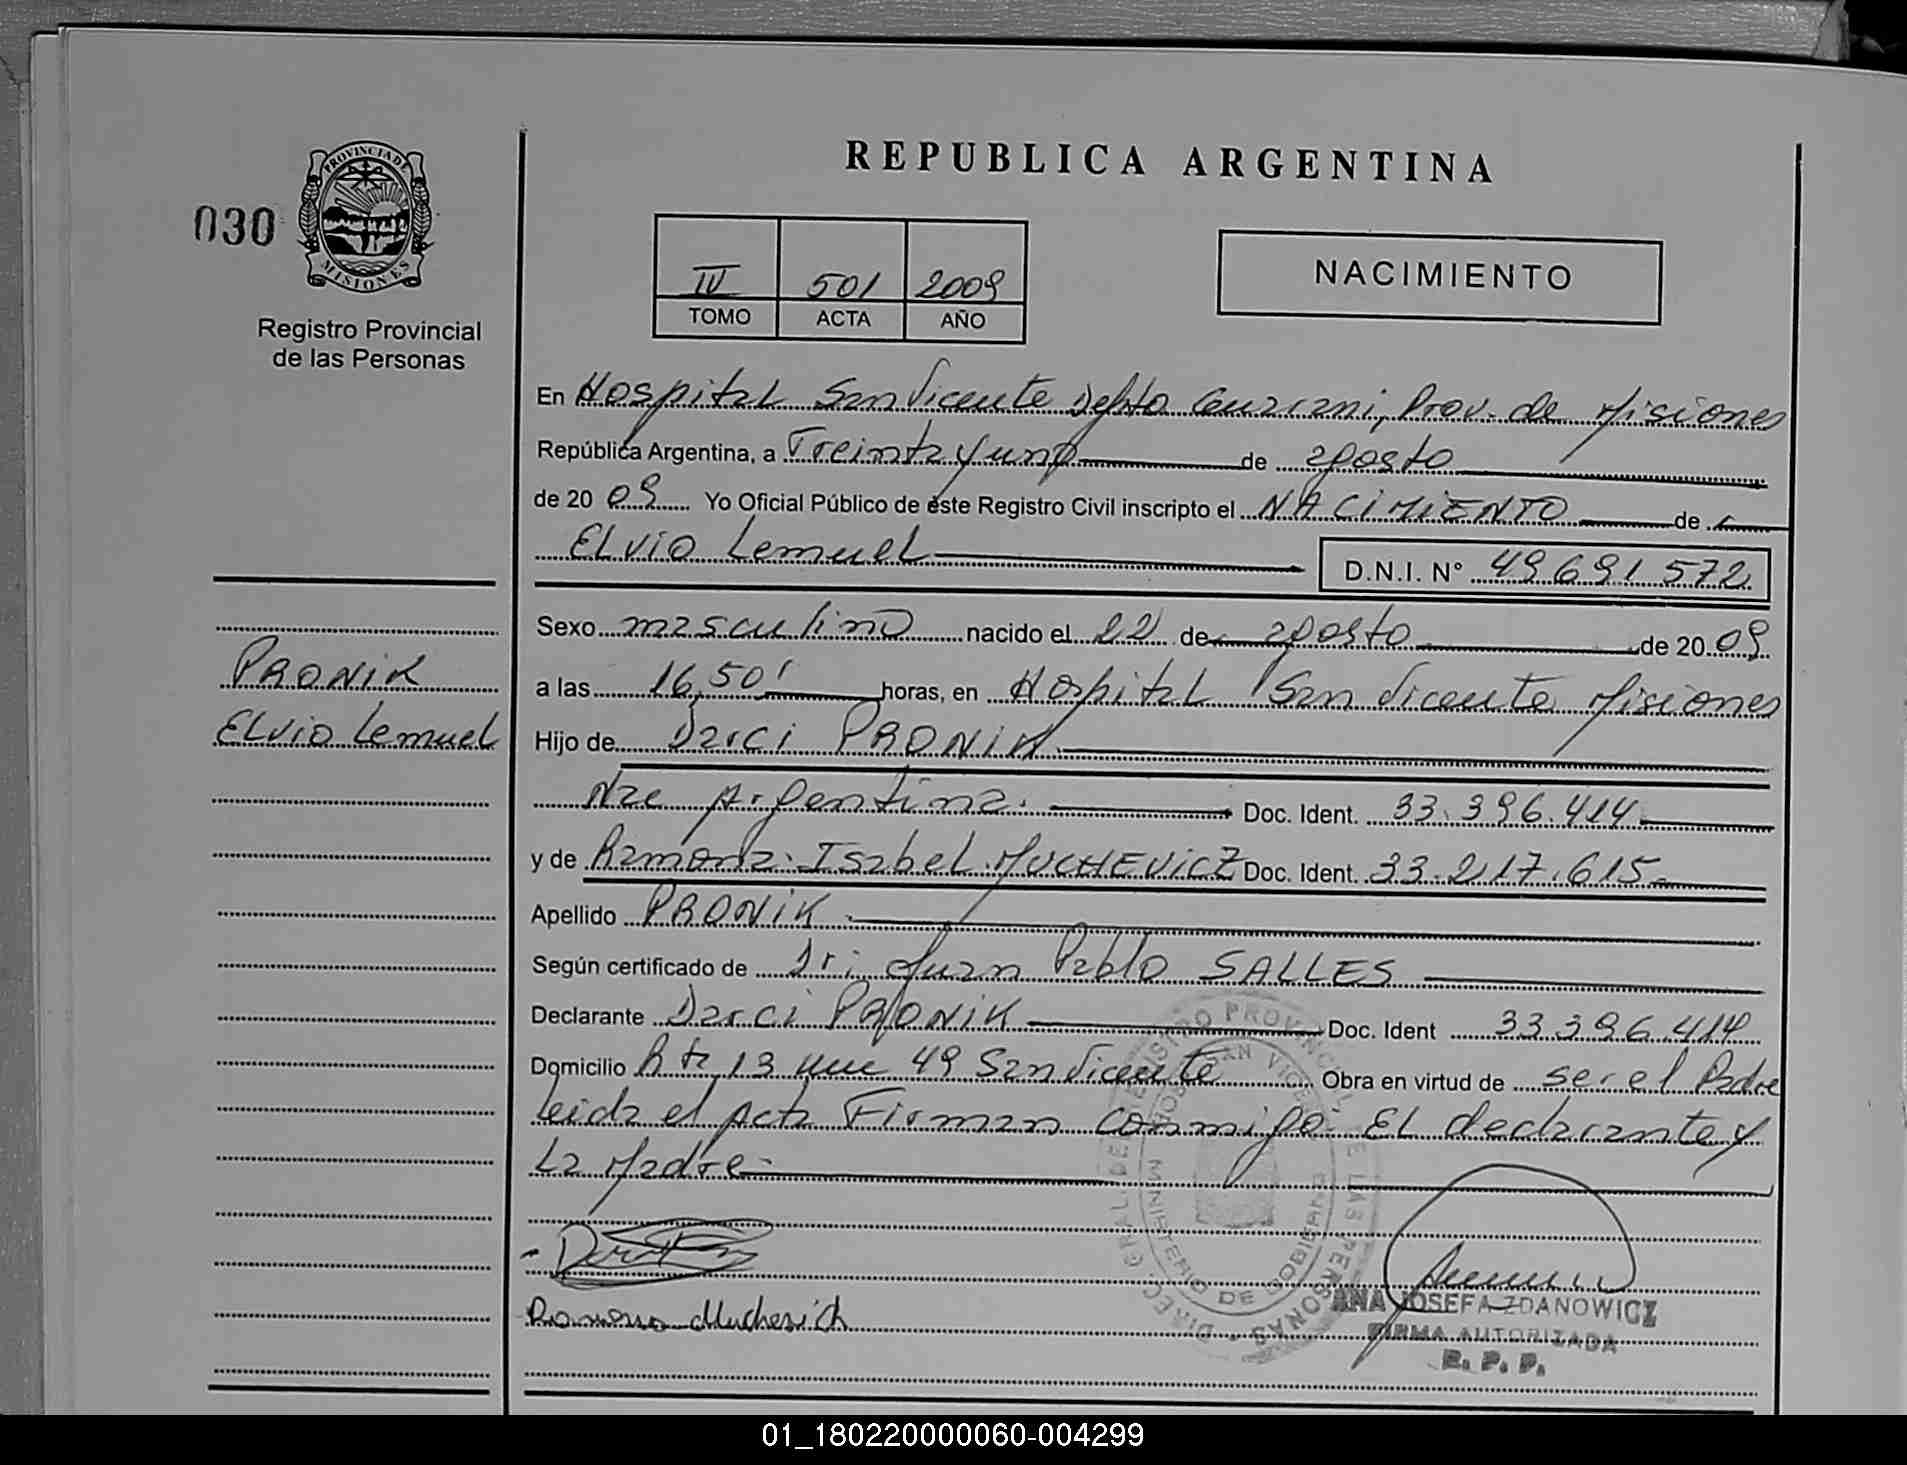 REPUBLICA ARGENTINA
030
PROVINCIA DE
MISIONES
Registro Provincial
de las Personas
IV 501 2009
TOMO ACTA AÑO
NACIMIENTO
En Hospital San Vicente Depto Guarani, Prov. de Misiones
República Argentina, a Treinta y uno de agosto
de 20 09 Yo Oficial Público de éste Registro Civil inscripto el NACIMIENTO de
ELvio Lemuel D.N.I. N° 49691572.
Sexo masculino nacido el 22 de agosto de 20 09
PRONIK
ELvio Lemuel
a las 16,50' horas, en Hospital San Vicente Misiones
Hijo de Darci PRONIK
Nac Argentina. Doc. Ident. 33.396.414
y de Ramona Isabel MUCHEVICZ Doc. Ident. 33.217.615
Apellido PRONIK
Según certificado de Dr: Juan Pablo SALLES
Declarante Darci PRONIK Doc. Ident 33.396.414
Domicilio Rta 13 49 San Vicente Obra en virtud de ser el Padre
leida el Acta Firman conmigo EL declarante y
La Madre
Ramona Muchevich
DIREC. GRAL. DEL REGISTRO PROVINCIAL DE LAS PERSONAS
MINISTERIO DE GOBIERNO
ANA JOSEFA ZDANOWICZ
FIRMA AUTORIZADA
R. P. P.
01_180220000060-004299